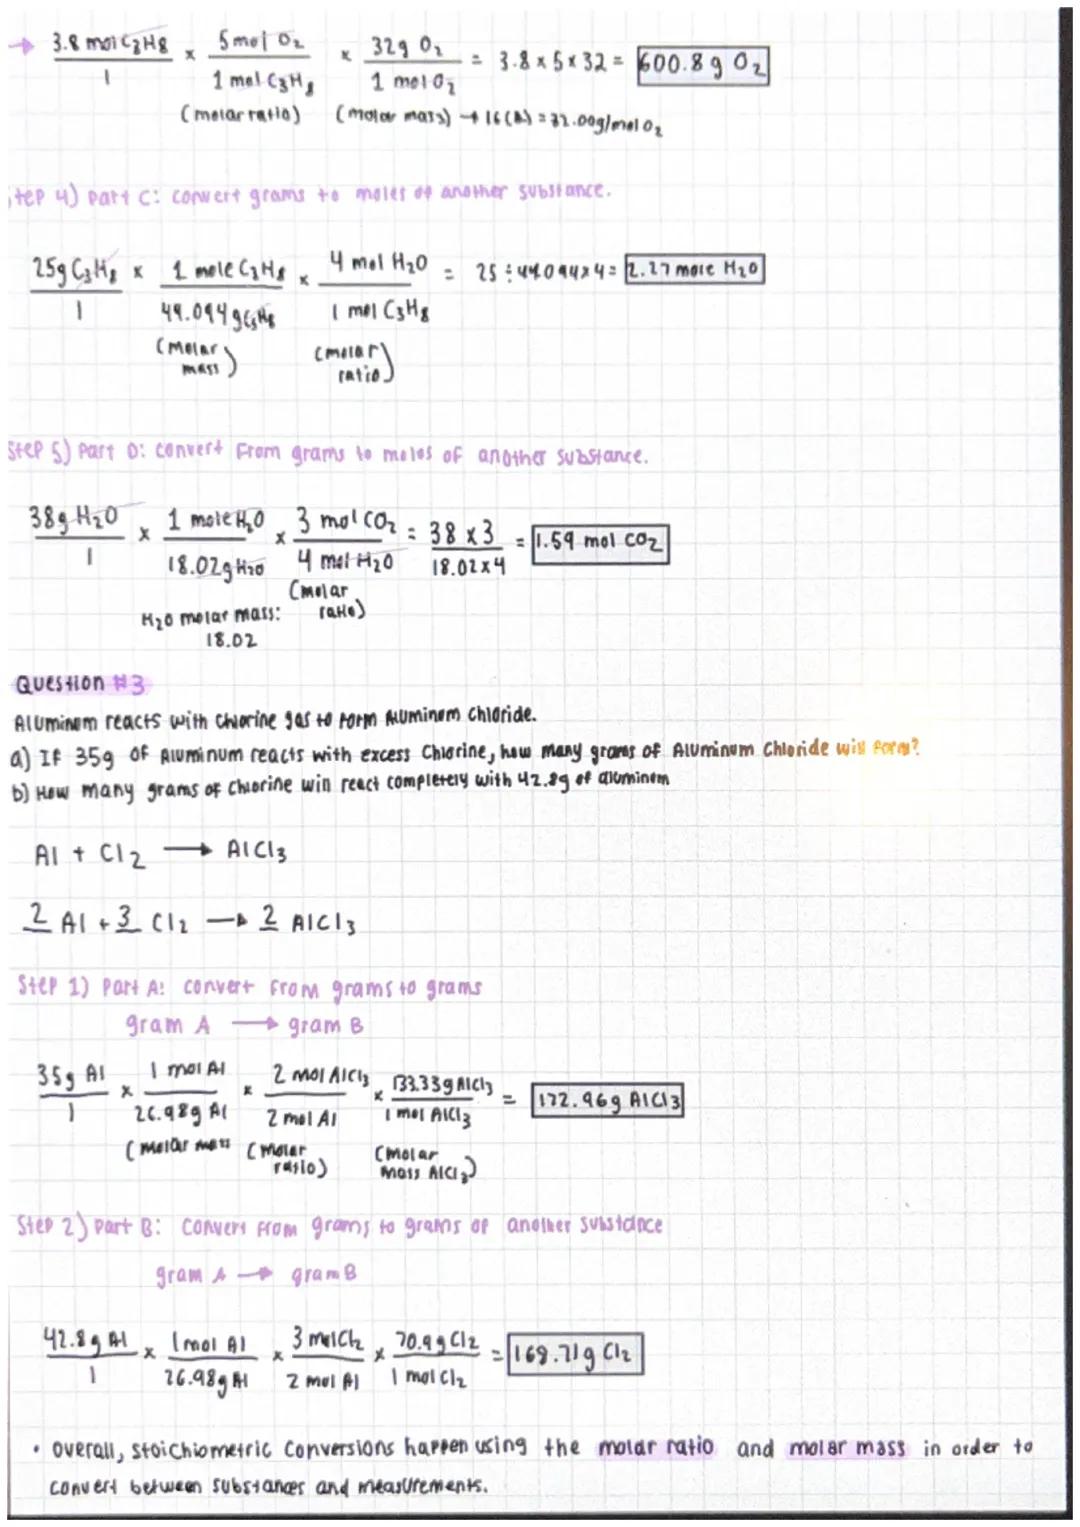 → 3.8 mol C3H8 / 1 x 5 mol O2 / 1 mol C3H8 x 32g O2 / 1 mol O2 = 3.8 x 5 x 32 = 600.8 g O2
(molar ratio) (molar mass) → 16(2) = 32.00g/mol O2
Step 4) Part C: convert grams to moles of another substance.
25g C3H8 / 1 x 1 mole C3H8 / 44.094 g C3H8 x 4 mol H2O / 1 mol C3H8 = 25 ÷ 44.094 x 4 = 2.27 mole H2O
(molar mass) (molar ratio)
Step 5) Part D: convert From grams to moles of another substance.
38g H2O / 1 x 1 mole H2O / 18.02g H2O x 3 mol CO2 / 4 mol H2O = 38 x 3 / 18.02 x 4 = 1.59 mol CO2
(molar ratio)
H2O molar mass: 18.02
Question #3
Aluminem reacts with chlorine gas to form Aluminem chloride.
a) If 35g of Aluminum reacts with excess Chlorine, how many grams of Aluminum Chloride will form?
b) How many grams of chlorine will react completely with 42.8g of aluminem
Al + Cl2 → AlCl3
2 Al + 3 Cl2 → 2 AlCl3
Step 1) Part A: convert from grams to grams
gram A → gram B
35g Al / 1 x 1 mol Al / 26.98g Al x 2 mol AlCl3 / 2 mol Al x 133.33g AlCl3 / 1 mol AlCl3 = 172.96g AlCl3
(molar mass (molar ratio) (molar mass AlCl3)
Step 2) Part B: Convert from grams to grams of another substance
gram A → gram B
42.8g Al / 1 x 1 mol Al / 26.98g Al x 3 mol Cl2 / 2 mol Al x 70.9g Cl2 / 1 mol Cl2 = 168.71g Cl2
• overall, stoichiometric conversions happen using the molar ratio and molar mass in order to
convert between substances and measurements.